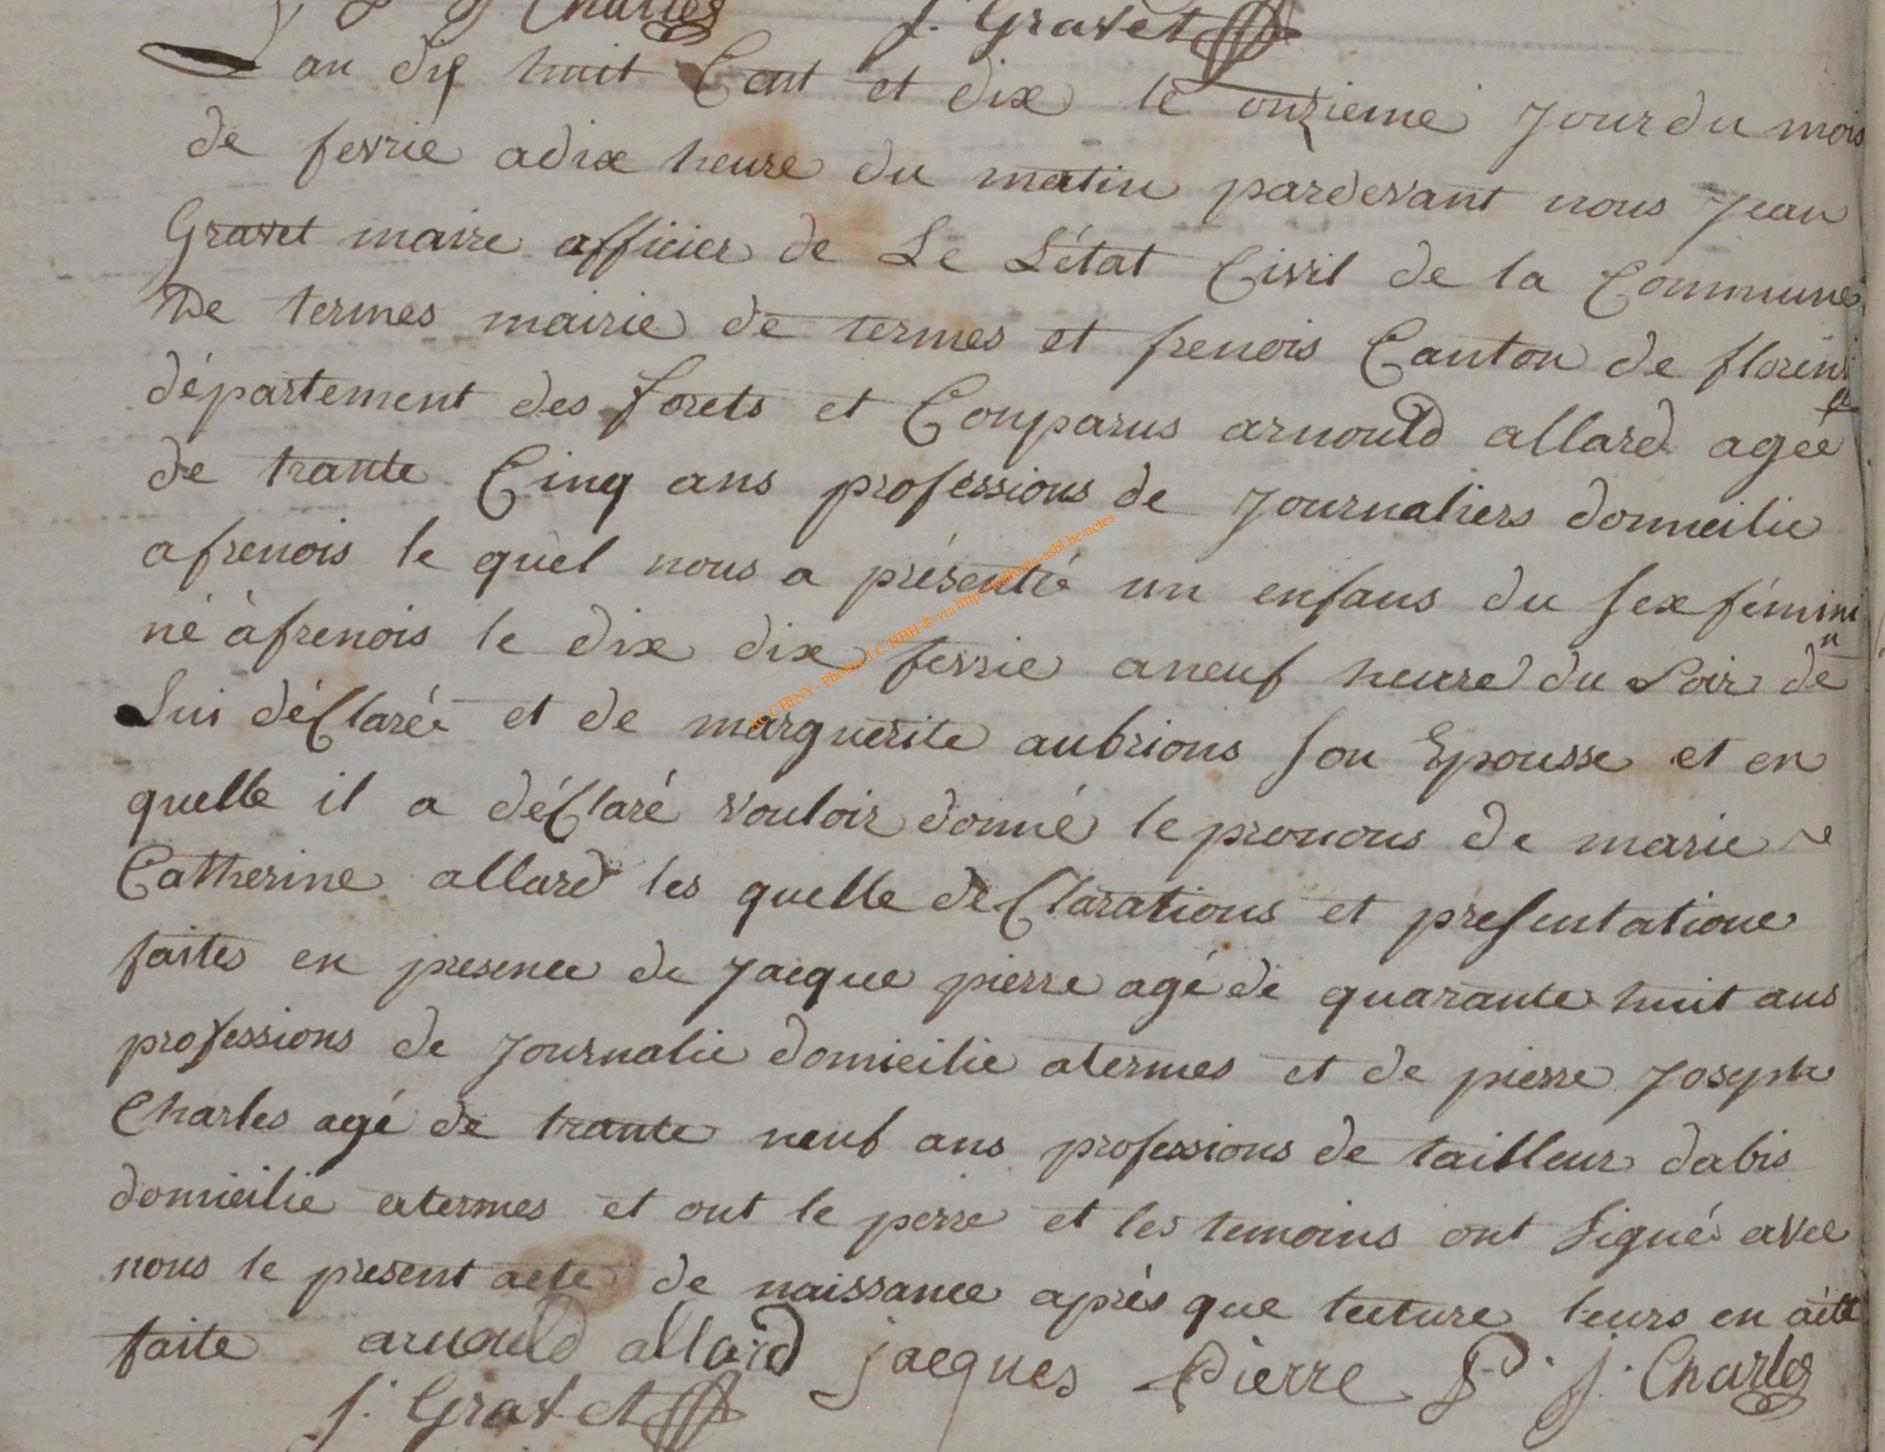 J Charles J. Gravet
L an dix huit Cent et dix le onzieme Jour du mois
de fevrie a dix heure du matin pardevant nous Jean
Gravet maire officier de Le L'état Civil de la Commune
De termes mairie de termes et frenois Canton de floren
département des forets et Comparus arnould allard agée
de trante Cinq ans professions de Journaliers domicilie
a frenois le quel nous a présenté un enfans du sex fémini
n
né à frenois le dix dix fevrie a neuf heure du Soir de
Lui déClarée et de marguerite aubrions son Epousse et en
quelle il a déClaré vouloir donné le pronons de marie
Catherine allard les quelle deClarations et presentatione
faites en presence de Jacque pierre agé de quarante huit ans
professions de Journalie domicilie a termes et de pierre Joseph
Charles agé de trante neuf ans professions de tailleur dabis
domicilie a termes et ont le perre et les temoins ont Signé avec
nous le present acte de naissance après que lecture leurs en aété
faite arnould allard jacques Pierre P. j. Charles
J. Gravet
AC CHINY - Photos J C HBH ® via http://wallonia-asbl.be/actes